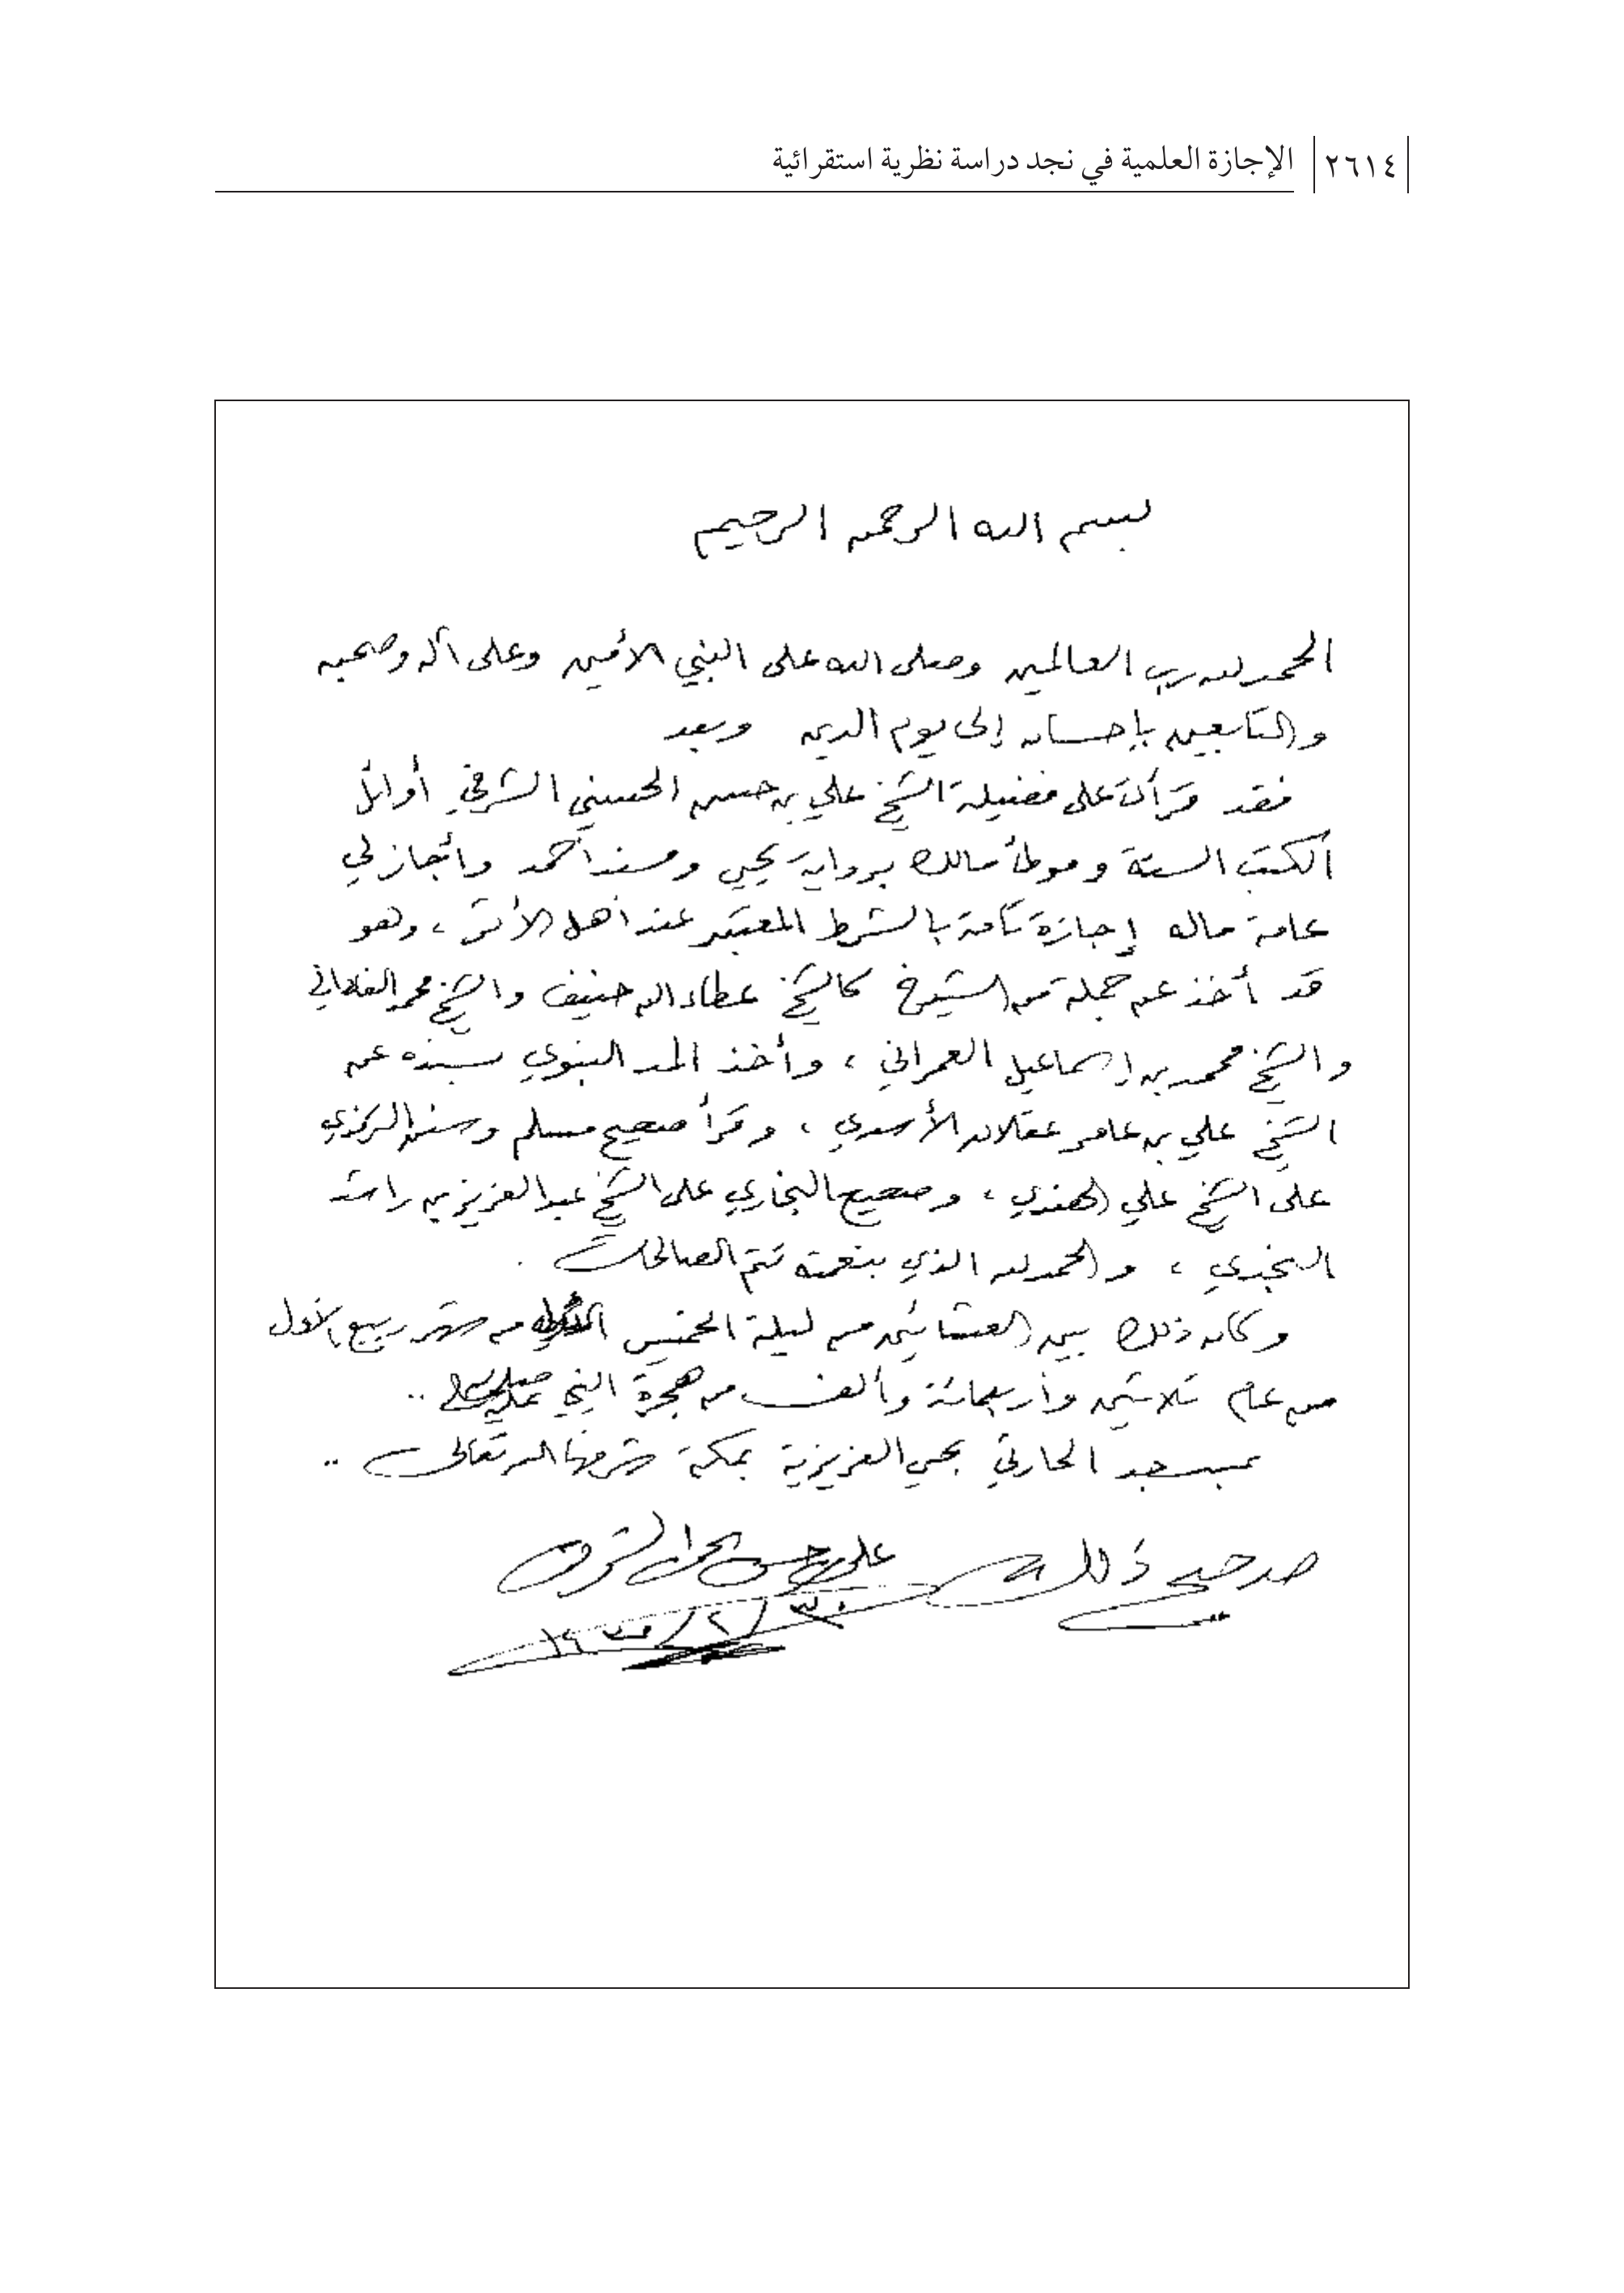 ٢٦١٤ الإجازة العلمية في نجد دراسة نظرية استقرائية
بسم الله الرحمن الرحيم
الحمد لله رب العالمين وصلى الله على النبي الأمين وعلى آله وصحبه
والتابعين بإحسان إلى يوم الدين وبعد
فقد قرأت على فضيلة الشيخ علي بن حسن الحسيني الشرفي أوائل
الكتب الستة وموطأ مالك برواية يحيى ومسند أحمد وأجاز لي
عامة ماله إجازة تامة بالشرط المعتبر عند أهل الأثر ، وهو
قد أخذ عن جملة من الشيوخ كالشيخ عطاء الله حنيف والشيخ محمد الفاداني
والشيخ محمد بن إسماعيل العمراني ، وأخذ المد النبوي بسنده عن
الشيخ علي بن عامر عقلان الأسدي ، وقرأ صحيح مسلم وسنن الترمذي
على الشيخ علي الهندي ، وصحيح البخاري على الشيخ عبد العزيز بن راشد
النجدي ، والحمد لله الذي بنعمته تتم الصالحات .
وكان ذلك بين العشائين من ليلة الخميس من شهر ربيع الأول
من عام ثلاثين وأربعمائة وألف من هجرة النبي ..
بمسجد الحارثي بحي العزيزية بمكة شرفها الله تعالى ..
صحيح ذلك علي بن حسن الشرفي